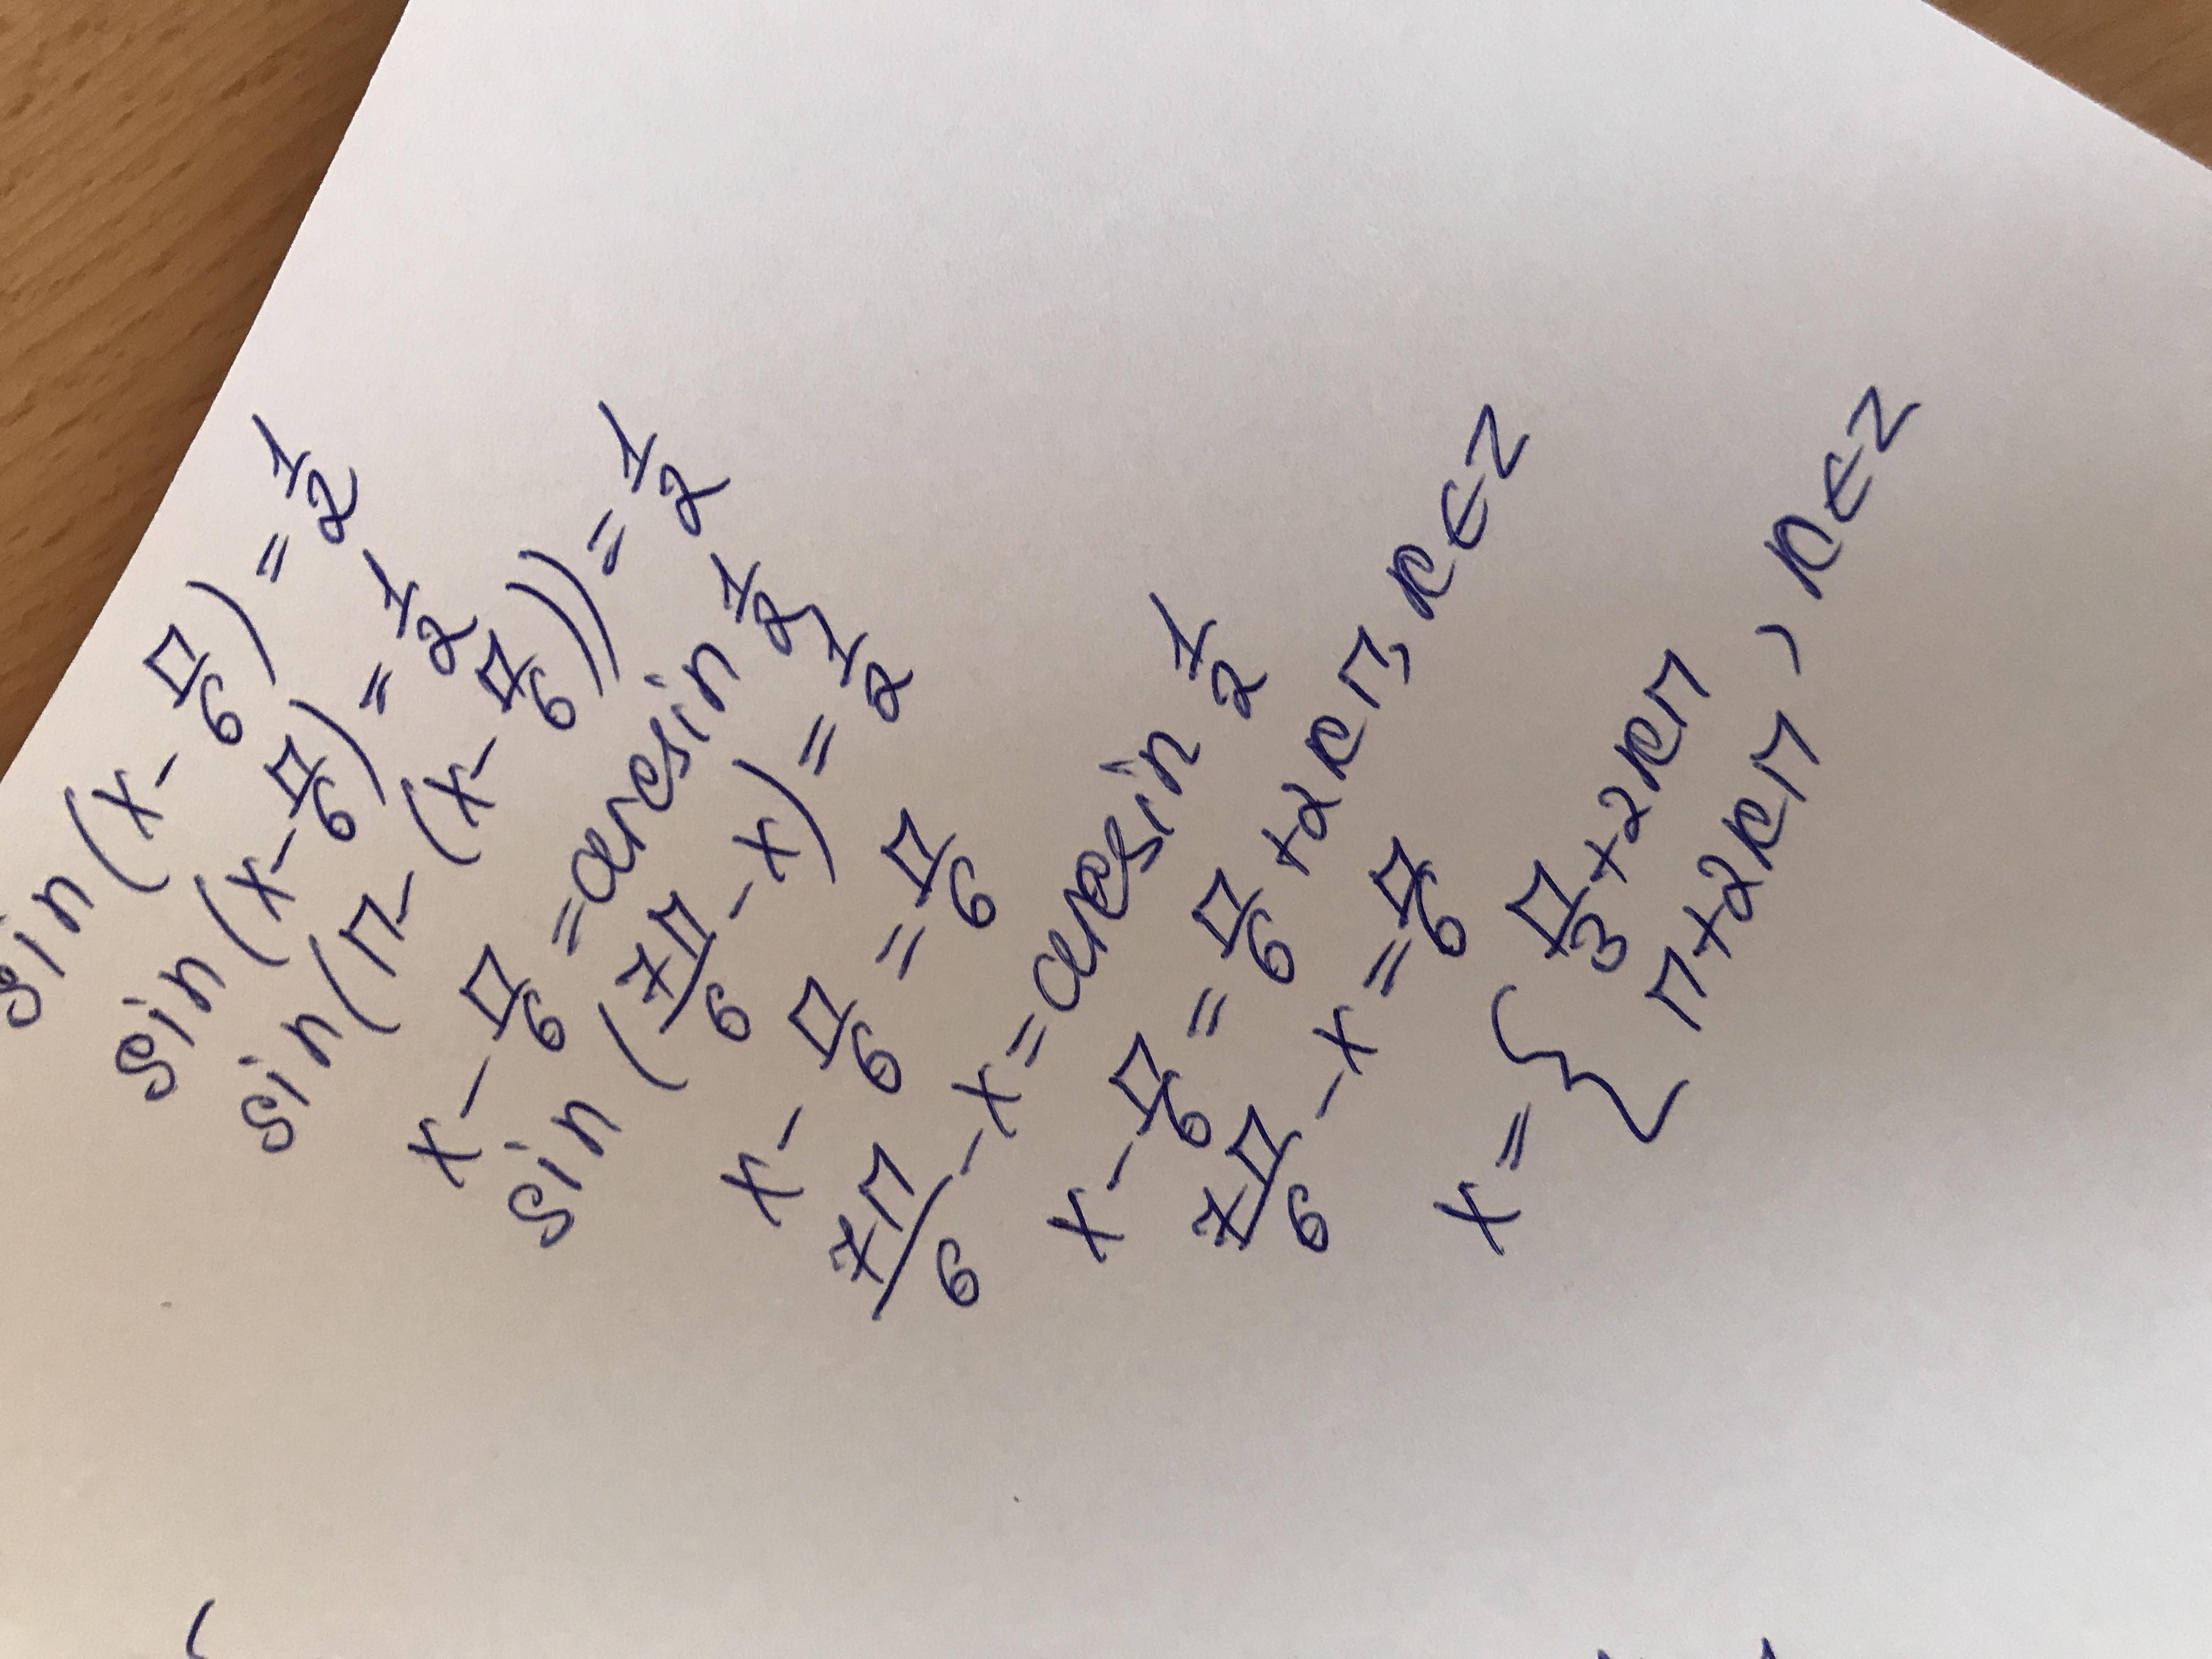 sin(x-π/6)=1/2
sin(x-π/6)=1/2
sin(π-(x-π/6))=1/2
x-π/6=arcsin 1/2
sin(7π/6-x)=1/2
x-π/6=π/6
7π/6-x=arcsin 1/2
x-π/6=π/6+2kπ, k∈Z
7π/6-x=π/6
x={π/3+2kπ
π+2kπ, k∈Z